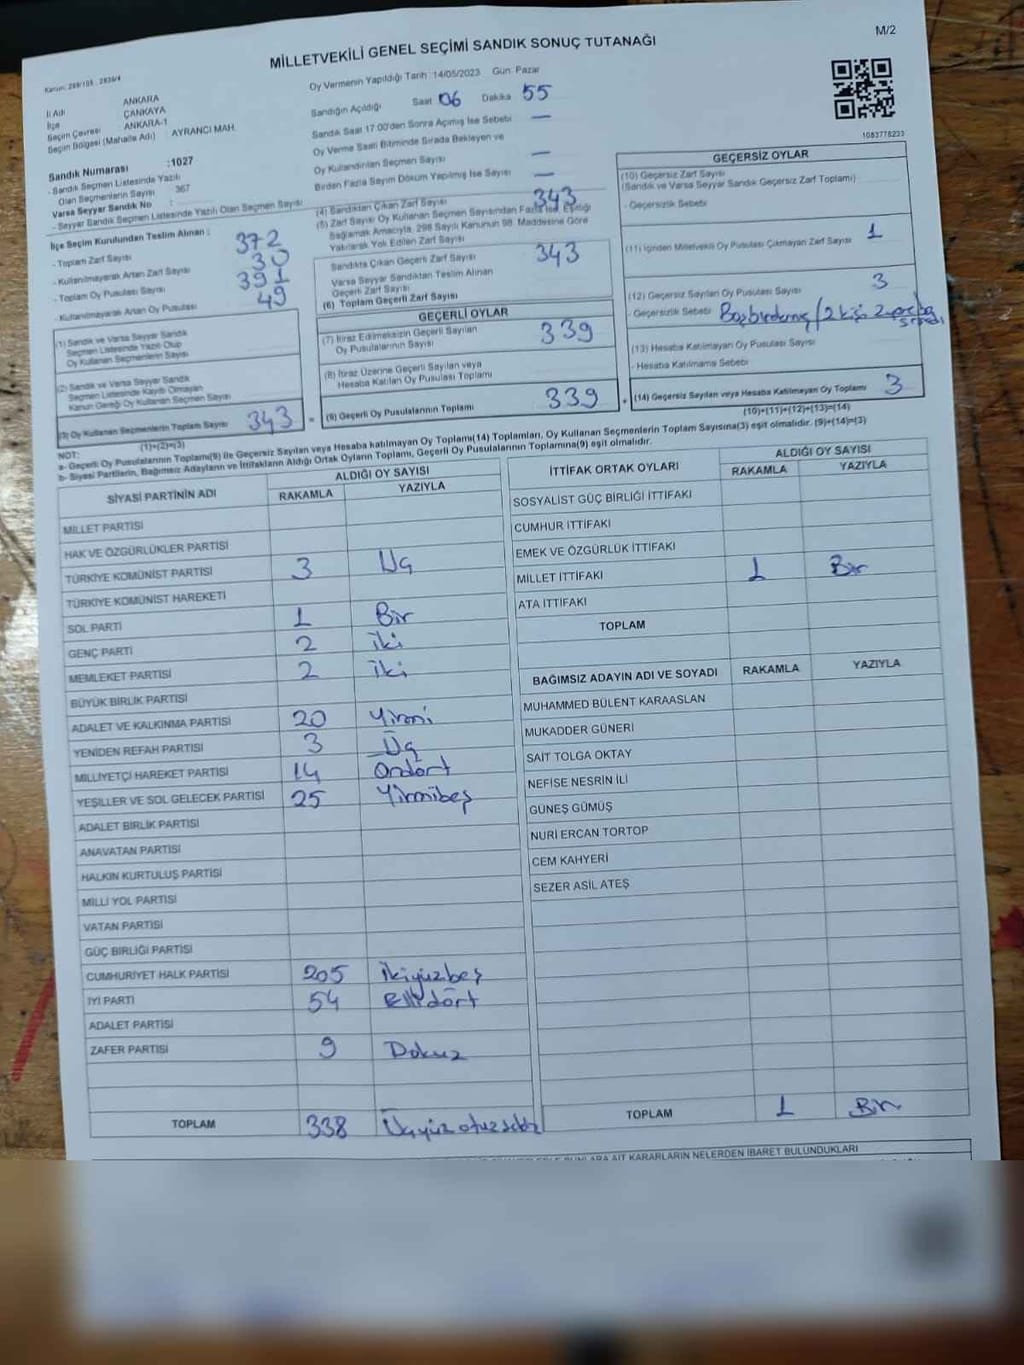 M/2
MİLLETVEKİLİ GENEL SEÇİMİ SANDIK SONUÇ TUTANAĞI
Oy Vermenin Yapıldığı Tarih :14/05/2023 Gün: Pazar
İl Adı ANKARA
İlçe ÇANKAYA
Seçim Çevresi ANKARA-1
Seçim Bölgesi (Mahalle Adı) : AYRANCI MAH.
Sandık Numarası :1027
- Sandık Seçmen Listesinde Yazılı
Olan Seçmenlerin Sayısı 367
Varsa Seyyar Sandık No :
- Seyyar Sandık Seçmen Listesinde Yazılı Olan Seçmen Sayısı
Sandığın Açıldığı Saat 06 Dakika 55
Sandık Saat 17:00'den Sonra Açımış İse Sebebi —
Oy Verme Saati Bitiminde Sırada Bekleyen ve
Oy Kullandırılan Seçmen Sayısı —
Birden Fazla Sayım Döküm Yapılmış İse Sayısı —
1083778233
İlçe Seçim Kurulundan Teslim Alınan :
- Toplam Zarf Sayısı 372
- Kullanılmayarak Artan Zarf Sayısı 30
- Toplam Oy Pusulası Sayısı 391
- Kullanılmayarak Artan Oy Pusulası 49
(1) Sandık ve Varsa Seyyar Sandık
Seçmen Listesinde Yazılı Olup
Oy Kullanan Seçmenlerin Sayısı
(2) Sandık ve Varsa Seyyar Sandık
Seçmen Listesinde Kaydı Olmayan
Kanun Gereği Oy Kullanan Seçmen Sayısı
(3) Oy Kullanan Seçmenlerin Toplam Sayısı 343
(1)+(2)=(3)
(4) Sandıktan Çıkan Zarf Sayısı 343
(5) Zarf Sayısı Oy Kullanan Seçmen Sayısından Fazla İse, Eşitliği
Sağlamak Amacıyla, 298 Sayılı Kanunun 98. Maddesine Göre
Yakılarak Yok Edilen Zarf Sayısı
Sandıkta Çıkan Geçerli Zarf Sayısı 343
Varsa Seyyar Sandıktan Teslim Alınan
Geçerli Zarf Sayısı
(6) Toplam Geçerli Zarf Sayısı
GEÇERLİ OYLAR
(7) İtiraz Edilmeksizin Geçerli Sayılan
Oy Pusulalarının Sayısı 339
(8) İtiraz Üzerine Geçerli Sayılan veya
Hesaba Katılan Oy Pusulası Toplamı
= (9) Geçerli Oy Pusulalarının Toplamı 339
GEÇERSİZ OYLAR
(10) Geçersiz Zarf Sayısı
(Sandık ve Varsa Seyyar Sandık Geçersiz Zarf Toplamı)
- Geçersizlik Sebebi
(11) İçinden Milletvekili Oy Pusulası Çıkmayan Zarf Sayısı 1
(12) Geçersiz Sayılan Oy Pusulası Sayısı 3
- Geçersizlik Sebebi
(13) Hesaba Katılmayan Oy Pusulası Sayısı
- Hesaba Katılmama Sebebi
+ (14) Geçersiz Sayılan veya Hesaba Katılmayan Oy Toplamı 3
(10)+(11)+(12)+(13)=(14)
NOT:
a- Geçerli Oy Pusulalarının Toplamı(9) ile Geçersiz Sayılan veya Hesaba katılmayan Oy Toplamı(14) Toplamları, Oy Kullanan Seçmenlerin Toplam Sayısına(3) eşit olmalıdır. (9)+(14)=(3)
b- Siyasi Partilerin, Bağımsız Adayların ve İttifakların Aldığı Ortak Oyların Toplamı, Geçerli Oy Pusulalarının Toplamına(9) eşit olmalıdır.
SİYASİ PARTİNİN ADI ALDIĞI OY SAYISI
RAKAMLA YAZIYLA
MİLLET PARTİSİ
HAK VE ÖZGÜRLÜKLER PARTİSİ
TÜRKİYE KOMÜNİST PARTİSİ 3 Üç
TÜRKİYE KOMÜNİST HAREKETİ
SOL PARTİ 1 Bir
GENÇ PARTİ 2 iki
MEMLEKET PARTİSİ 2 iki
BÜYÜK BİRLİK PARTİSİ
ADALET VE KALKINMA PARTİSİ 20 Yirmi
YENİDEN REFAH PARTİSİ 3 Üç
MİLLİYETÇİ HAREKET PARTİSİ 14 Ondört
YEŞİLLER VE SOL GELECEK PARTİSİ 25 Yirmibeş
ADALET BİRLİK PARTİSİ
ANAVATAN PARTİSİ
HALKIN KURTULUŞ PARTİSİ
MİLLİ YOL PARTİSİ
VATAN PARTİSİ
GÜÇ BİRLİĞİ PARTİSİ
CUMHURİYET HALK PARTİSİ 205 İkiyüzbeş
İYİ PARTİ 54 Ellidört
ADALET PARTİSİ
ZAFER PARTİSİ 9 Dokuz
TOPLAM 338 Üçyüzotuzsekiz
İTTİFAK ORTAK OYLARI ALDIĞI OY SAYISI
RAKAMLA YAZIYLA
SOSYALİST GÜÇ BİRLİĞİ İTTİFAKI
CUMHUR İTTİFAKI
EMEK VE ÖZGÜRLÜK İTTİFAKI
MİLLET İTTİFAKI 1 Bir
ATA İTTİFAKI
TOPLAM
BAĞIMSIZ ADAYIN ADI VE SOYADI RAKAMLA YAZIYLA
MUHAMMED BÜLENT KARAASLAN
MUKADDER GÜNERİ
SAİT TOLGA OKTAY
NEFİSE NESRİN İLİ
GÜNEŞ GÜMÜŞ
NURİ ERCAN TORTOP
CEM KAHYERİ
SEZER ASİL ATEŞ
TOPLAM 1 Bir
AİT KARARLARIN NELERDEN İBARET BULUNDUKLARI